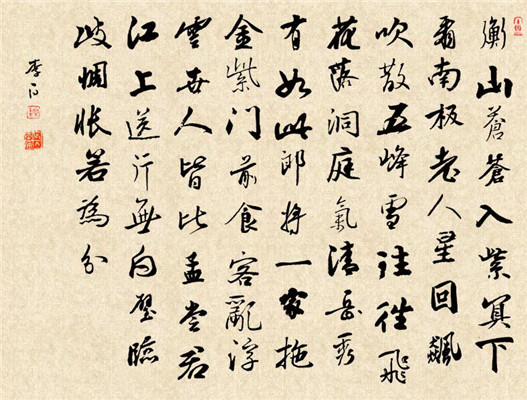 衡山蒼蒼入紫冥下
看南极老人星回飆
吹散五峰雪往往飛
花落洞庭氣清岳秀
有如此郎将一家拖
金紫门前食客亂浮
雲世人皆比孟尝君
江上送行無白璧臨
歧惆悵若為分
李白